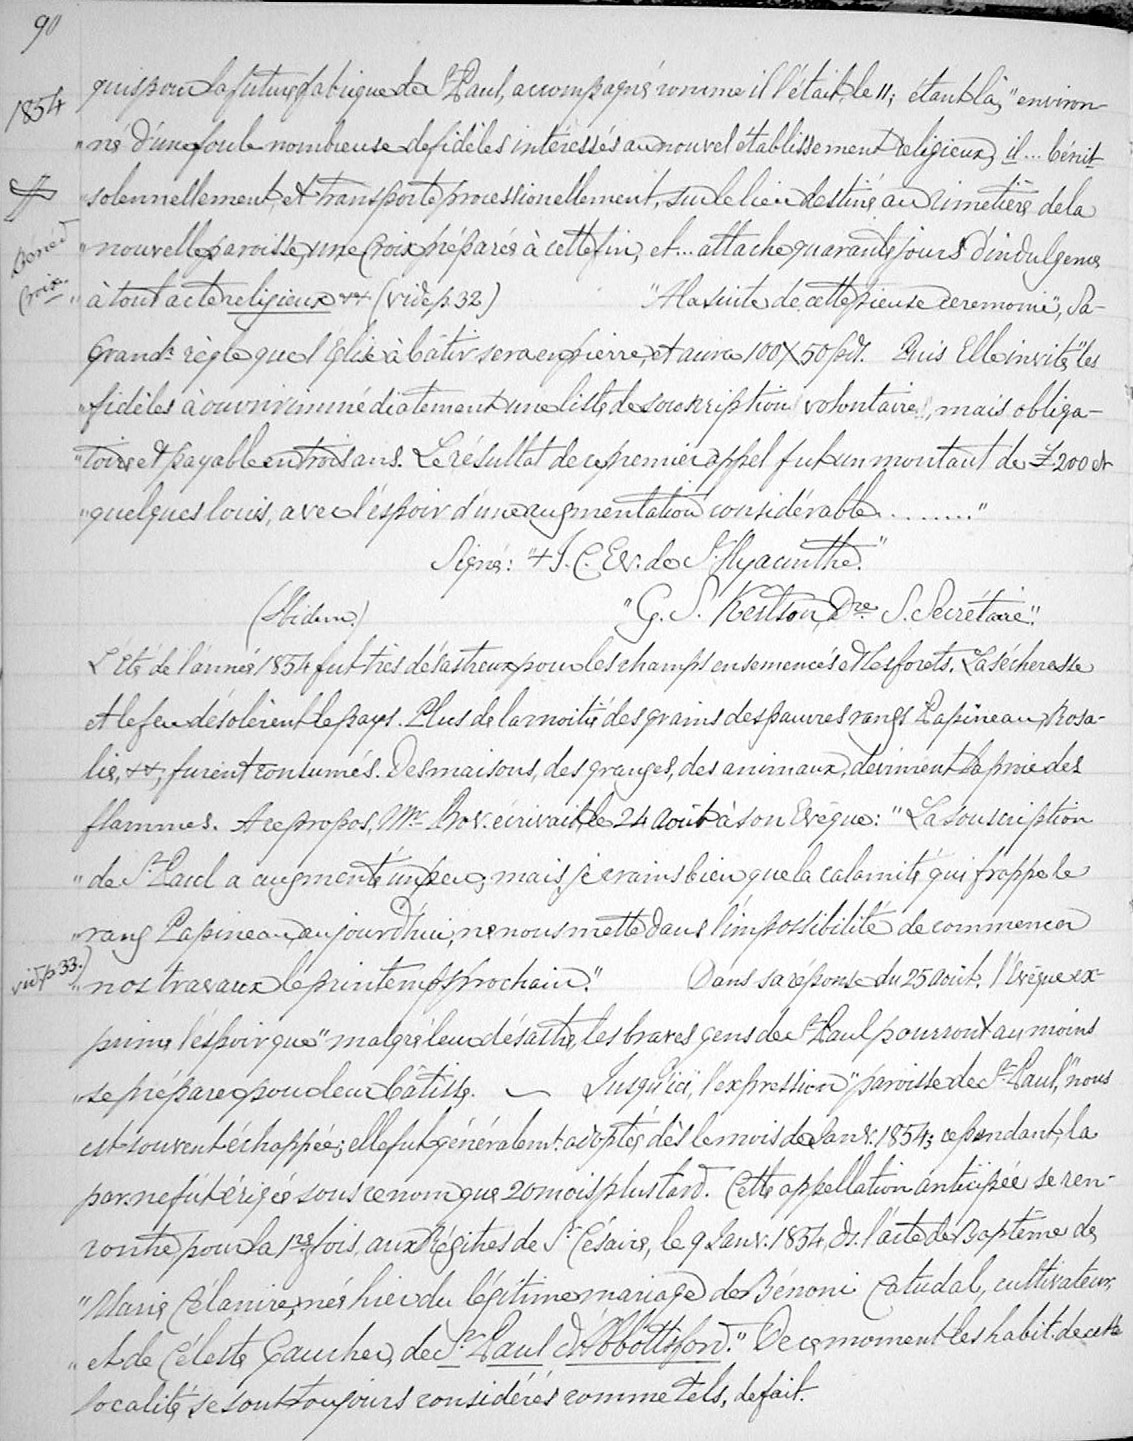 90
1854
quis pour la future fabrique de St Paul, accompagné comme il l'était le 11; étant là, "environ-
"né d'une foule nombreuse de fidèles intéressés au nouvel établissement religieux, il... bénit
"solennellement, et transporte processionellement, sur le lieu destiné au cimetière de la
Bénéd.
"nouvelle paroisse, une Croix préparée à cette fin, et... attache quarante jours d'indulgence
Croix.
"à tout acte religieux (vide p. 32) "A la suite de cette pieuse ceremonie", Sa
Grandr. règle que l'Eglise à bâtir sera en pierre, et aura 100 X 50 pds. Puis Elle invite "les
"fidèles à ouvrir immédiatement une liste de souscription volontaire, mais obliga-
"toire et payable en trois ans. Le résultat de ce premier appel fut un montant de £200 et
"quelques louis, avec l'espoir d'une augmentation considérable........"
Signé: "+ J. C. Ev. de St. Hyacinthe."
(Ibidem) "G. S. Kertson, Dre S. Secrétaire."
L'Eté de l'année 1854 fut très désastreux pour les champs ensemencés et les forets. La sécheresse
et le feu désolèrent le pays. Plus de la moitié des grains des pauvres rangs Papineau, Rosa-
lie, furent consumés. Des maisons, des granges, des animaux, devinrent la proie des
flammes. A ce propos, Mr. Prov. écrivait, le 24 Août à son Evêque: "La souscription
"de St. Paul a augmenté un peu; mais, je crains bien que la calamité qui frappe le
"rang Papineau, aujourd'hui, ne nous mette dans l'impossibilité de commencer
vid. p. 33.)
"nos travaux le printemps prochain." Dans sa réponse du 25 août, l'Evêque ex-
prime l'espoir que "malgré leur désastre, les braves gens de St. Paul pourront au moins
"se préparer pour leur bâtisse. — Jusqu'ici, l'expression "paroisse de St. Paul," nous
est souvent échappée; elle fut généralemt. adoptée, dès le mois de Janv. 1854; cependant, la
par. ne fut érigée sous ce nom que 20 mois plus tard. Cette appellation anticipée se ren-
contre pour la 1re fois, aux Régitres de St. Césaire, le 9 Janv. 1854, ds. l'acte de Baptême de
"Marie Célanire, née hier du légitime mariage de Bénoni Catudal, cultivateur,
"et de Céleste Gaucher, de St. Paul d'Abbottsford." De ce moment les habit. de cette
localité, se sont toujours considérés comme tels, de fait.